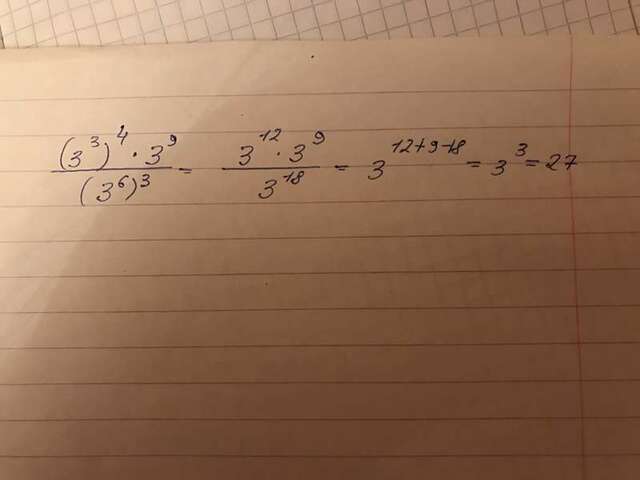 (3³)⁴ · 3⁹ / (3⁶)³ = 3¹² · 3⁹ / 3¹⁸ = 3¹²⁺⁹⁻¹⁸ = 3³ = 27